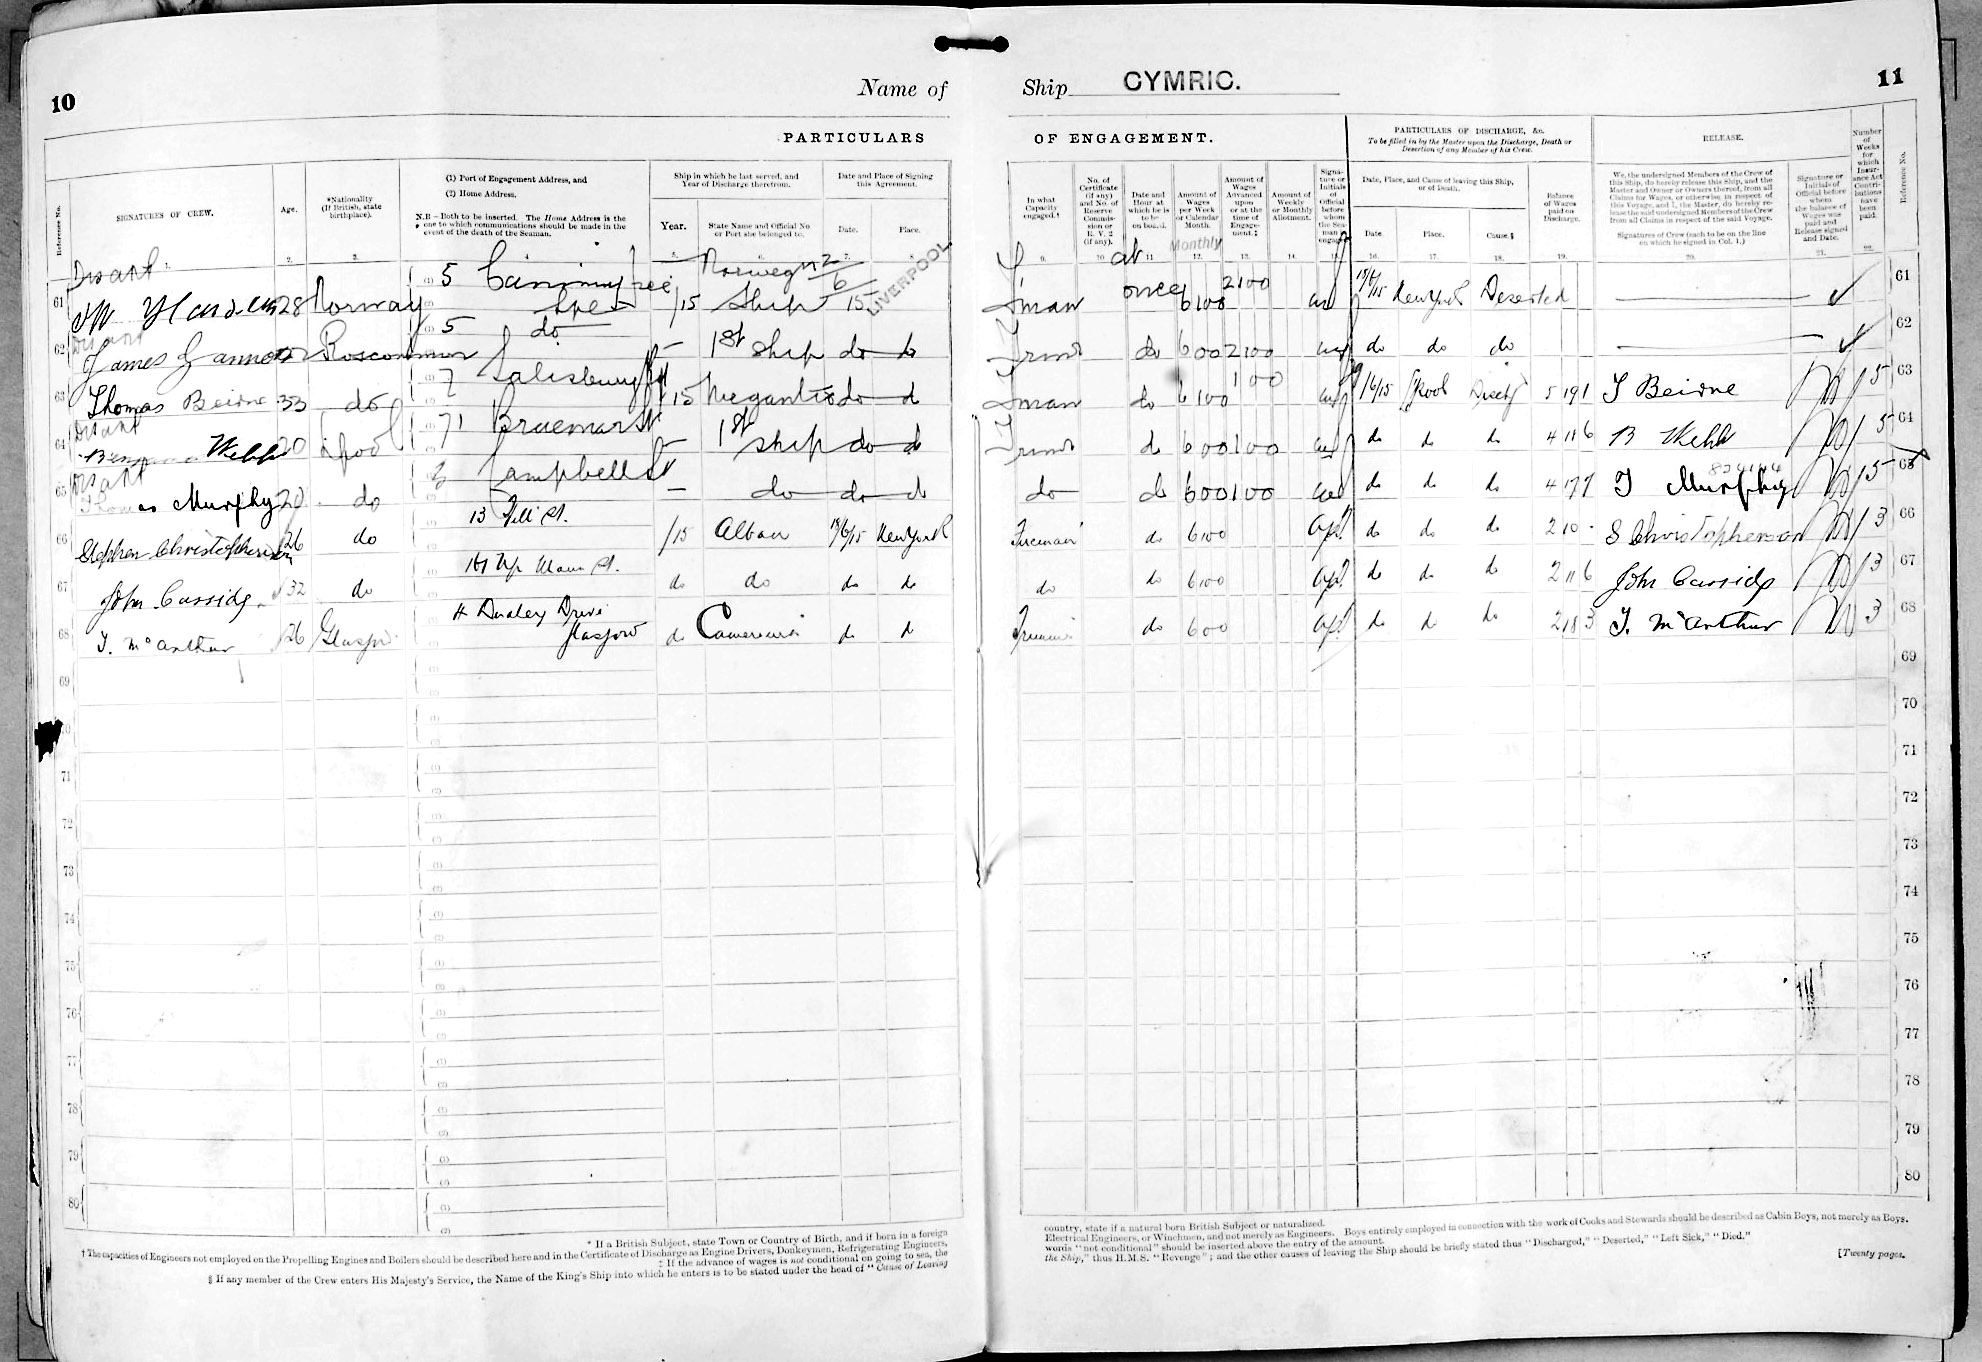 10
Name of
Ship CYMRIC.
11
PARTICULARS
OF ENGAGEMENT.
PARTICULARS OF DISCHARGE, &c.
To be filled in by the Master upon the Discharge, Death or
Desertion of any Member of his Crew.
RELEASE.
Number of Weeks for which Insurance Act Contributions have been paid.
Reference No.
Reference No.
SIGNATURES OF CREW.
Age.
*Nationality
(If British, state
birthplace).
(1) Port of Engagement Address, and
(2) Home Address.
N.B.—Both to be inserted. The Home Address is the
one to which communications should be made in the
event of the death of the Seaman.
Ship in which he last served, and
Year of Discharge therefrom.
Year.
State Name and Official No
or Port she belonged to.
Date and Place of Signing
this Agreement.
Date.
Place.
In what
Capacity
engaged.†
No. of
Certificate
(if any)
and No. of
Reserve
Commis-
sion or
R. V. 2
(if any).
Date and
Hour at
which he is
to be
on board.
Amount of
Wages
per Week
or Calendar
Month.
Monthly
Amount of
Wages
Advanced
upon
or at the
time of
Engage-
ment.‡
Amount of
Weekly
or Monthly
Allotment.
Signa-
ture or
Initials
of
Official
before
whom
the Sea
man is
engaged
Date, Place, and Cause of leaving this Ship,
or of Death.
Date.
Place.
Cause.§
Balance
of Wages
paid on
Discharge.
We, the undersigned Members of the Crew of
this Ship, do hereby release this Ship, and the
Master and Owner or Owners thereof, from all
Claims for Wages, or otherwise, in respect of
this Voyage, and I, the Master, do hereby re-
lease the said undersigned Members of the Crew
from all Claims in respect of the said Voyage.
Signatures of Crew (each to be on the line
on which he signed in Col. 1.)
Signature or
Initials of
Official before
whom
the balance of
Wages was
paid and
Release signed
and Date.
61 28 Norway 5 /15 Ship 15 LIVERPOOL at once 6 10 0 2 10 0 New York Deserted 61
62 James Gannon Roscommon 5 do 1st ship do do do 6 0 0 2 10 0 do do do 62
63 Thomas Beirne 33 do 7 Salisbury St 15 Megantic do do do 6 10 0 1 0 0 /6/15 Lpool Disch 5 19 1 T Beirne 5 63
64 Webb 20 Lpool 71 Braemar St — 1st ship do do do 6 0 0 1 0 0 do do do 4 18 6 B Webb 5 64
65 Thomas Murphy 20 do Campbell St — do do do do do 6 0 0 1 0 0 do do do 4 17 7 T Murphy 5 65
66 Stephen Christopherson 26 do 13 /15 Alban 18/6/15 New York Fireman do 6 10 0 do do do 2 10 - S Christopherson 3 66
67 John Cassidy 32 do do do do do do do 6 10 0 do do do 2 11 6 John Cassidy 3 67
68 T. McArthur 26 Glasgow 4 Dudley Drive Glasgow do Cameronia do do do 6 0 0 do do do 2 18 3 T. McArthur 3 68
69 69
70
71 71
72 72
73 73
74 74
75 75
76 76
77 77
78 78
79 79
80 80
* If a British Subject, state Town or Country of Birth, and if born in a foreign
country, state if a natural born British Subject or naturalized.
† The capacities of Engineers not employed on the Propelling Engines and Boilers should be described here and in the Certificate of Discharge as Engine Drivers, Donkeymen, Refrigerating Engineers,
Electrical Engineers, or Winchmen, and not merely as Engineers. Boys entirely employed in connection with the work of Cooks and Stewards should be described as Cabin Boys, not merely as Boys.
‡ If the advance of wages is not conditional on going to sea, the
words "not conditional" should be inserted above the entry of the amount.
§ If any member of the Crew enters His Majesty's Service, the Name of the King's Ship into which he enters is to be stated under the head of "Cause of Leaving
the Ship," thus H.M.S. "Revenge"; and the other causes of leaving the Ship should be briefly stated thus "Discharged," "Deserted," "Left Sick," "Died."
[Twenty pages.